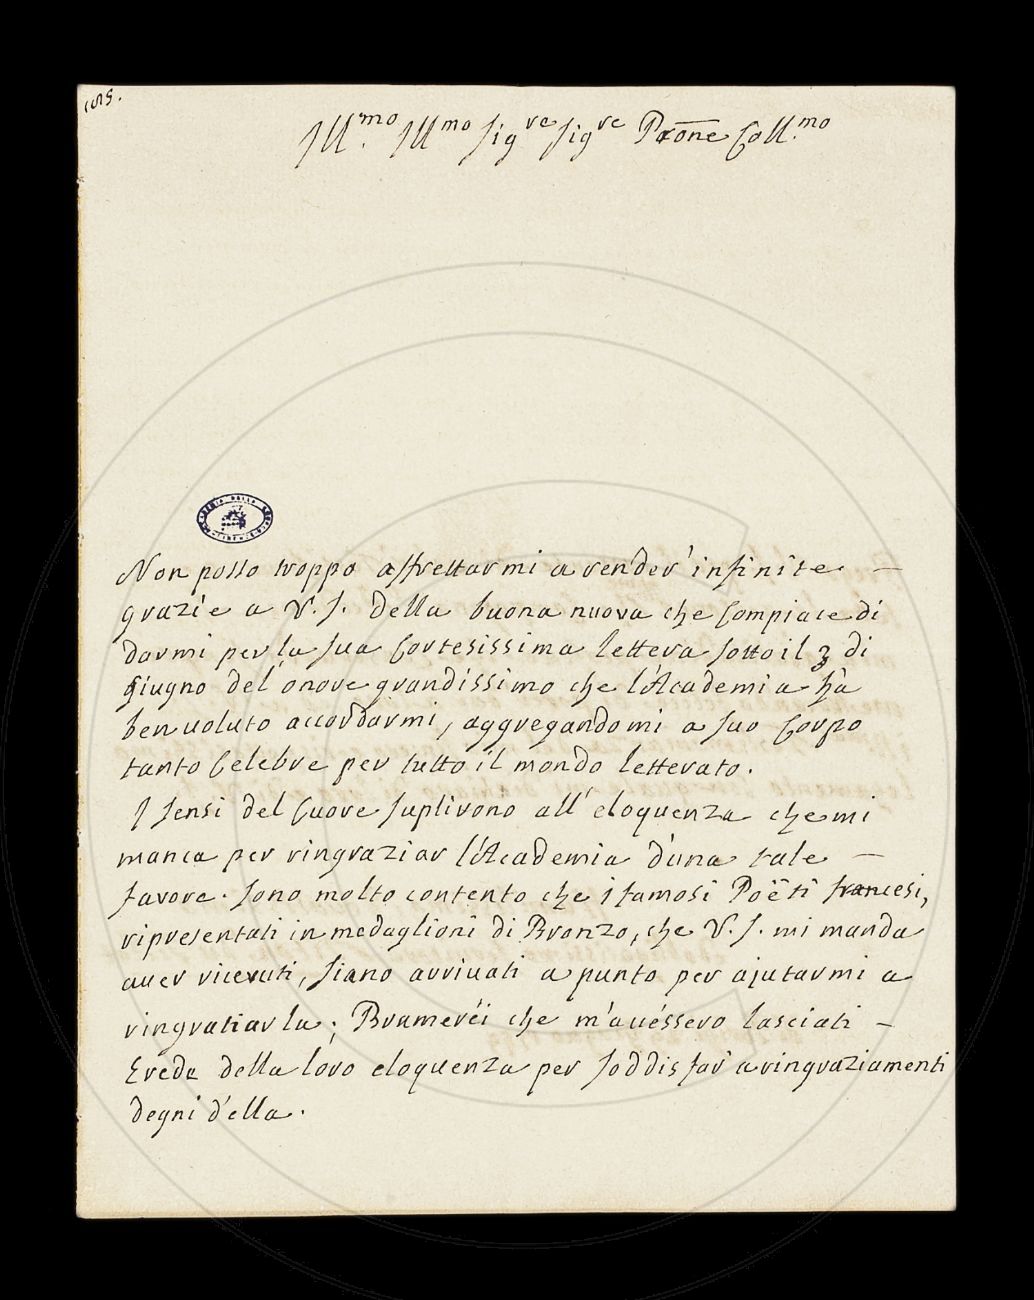 Ill.mo Ill.mo Sig.re Sig.re Prone Coll.mo
Non posso troppo affrettarmi a render' infinite —
grazie a V. S. della buona nuova che compiace di
darmi per la sua cortesissima lettera sotto il 3 di
giugno del' onore grandissimo che l'Academia hà
ben uoluto accordarmi, aggregandomi a suo Corpo
tanto Celebre per tutto il mondo letterato.
I sensi del Cuore suplirono all' eloquenza che mi
manca per ringraziar l'Academia d'una tale —
favore. sono molto contento che i famosi Poëti francesi,
ripresentati in medaglioni di Bronzo, che V. S. mi manda
auer riceuti, siano arriuati a punto per ajutarmi a
ringratiarla; Bramerëi che m'auéssero lasciati —
Erede della loro eloquenza per soddisfar' a ringraziamenti
degni d'ella.